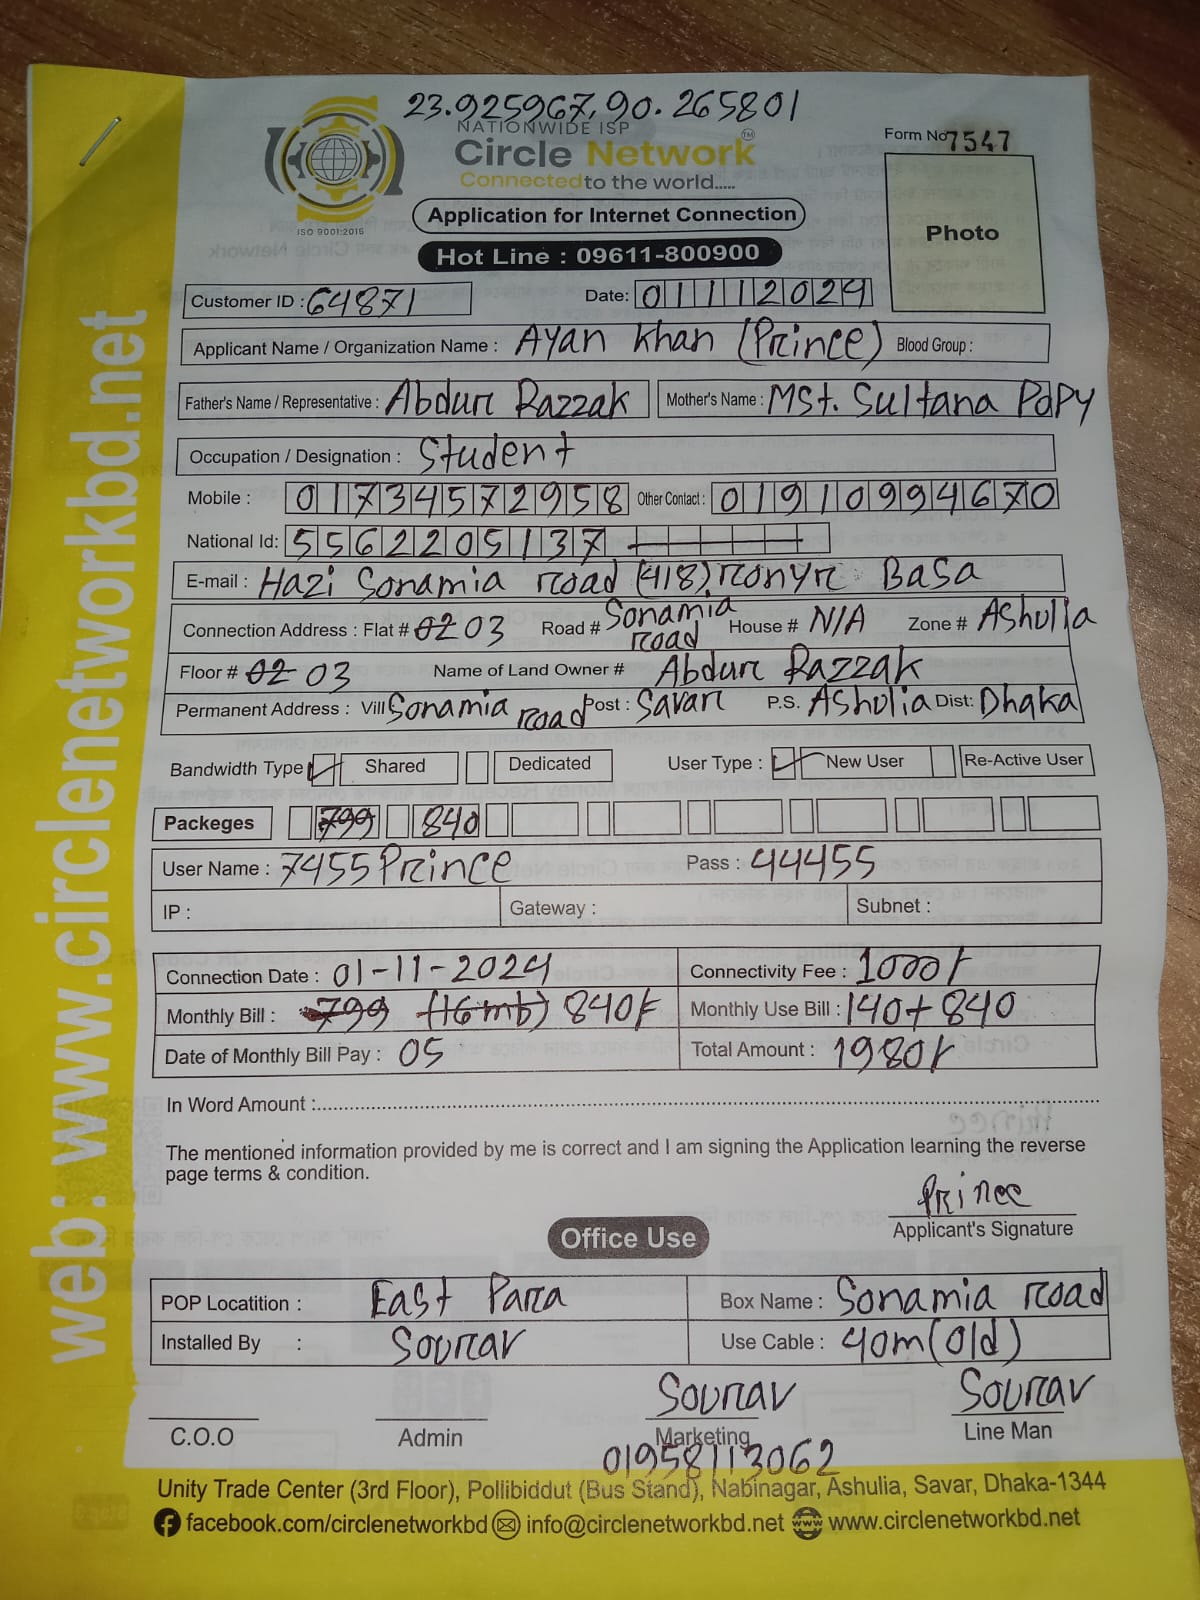 23.925967, 90.265801
NATIONWIDE ISP
Circle Network TM
Connected to the world.....
ISO 9001:2015
Form No 7547
Photo
Application for Internet Connection
Hot Line : 09611-800900
Customer ID : 64871 Date: 01112024
Applicant Name / Organization Name : Ayan Khan (Prince) Blood Group :
Father's Name / Representative : Abdur Razzak Mother's Name : MSt. Sultana Papy
Occupation / Designation : Student
Mobile : 01734572958 Other Contact : 01910994670
National Id: 5562205137
E-mail : Hazi Sonamia road (418), ronyr Basa
Connection Address : Flat # 02 03 Road # Sonamia road House # N/A Zone # Ashulia
Floor # 02 03 Name of Land Owner # Abdur Razzak
Permanent Address : Vill Sonamia road Post : Savar P.S. Ashulia Dist: Dhaka
Bandwidth Type Shared Dedicated User Type : New User Re-Active User
Packeges 799 840
User Name : 7455Prince Pass : 44455
IP : Gateway : Subnet :
Connection Date : 01-11-2024 Connectivity Fee : 1000/-
Monthly Bill : 799 (16mb) 840/- Monthly Use Bill : 140+840
Date of Monthly Bill Pay : 05 Total Amount : 1980/-
In Word Amount :
The mentioned information provided by me is correct and I am signing the Application learning the reverse
page terms & condition.
Prince
Applicant's Signature
Office Use
POP Locatition : East Para Box Name : Sonamia road
Installed By : Sourav Use Cable : 40m (old)
Sourav Sourav
C.O.O Admin Marketing Line Man
01958113062
Unity Trade Center (3rd Floor), Pollibiddut (Bus Stand), Nabinagar, Ashulia, Savar, Dhaka-1344
facebook.com/circlenetworkbd info@circlenetworkbd.net www.circlenetworkbd.net
web: www.circlenetworkbd.net